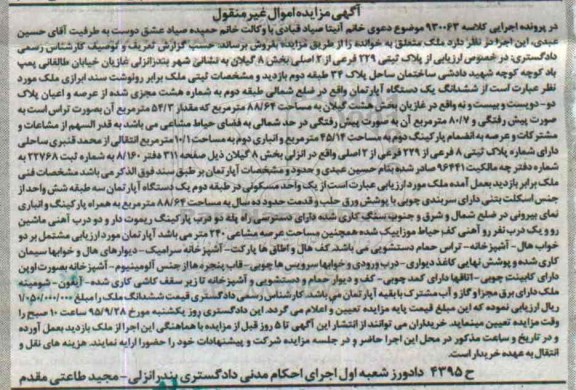 آگهی مزایده اموال غیر منقول
در پرونده اجرایی کلاسه ۹۳۰۰۶۳ موضوع دعوی خانم آنیتا صیاد قبادی با وکالت خانم حمیده صیاد عشق دوست به طرفیت آقای حسین
عبدی، این اجرا در نظر دارد ملک متعلق به خوانده را از طریق مزایده بفروش برساند. حسب گزارش تعریف و توصیف کارشناس رسمی
دادگستری: در خصوص ارزیابی از پلاک ثبتی ۲۲۹ فرعی از ۲ اصلی بخش ۸ گیلان به نشانی شهر بندرانزلی غازیان خیابان طالقانی پمپ
باد کوچه کوچه شهید دادشی ساختمان ساحل پلاک ۳۴ طبقه دوم بازدید و مشخصات ثبتی ملک برابر رونوشت سند ابرازی ملک مورد
نظر عبارت است از ششدانگ یک دستگاه آپارتمان واقع در ضلع شمالی طبقه دوم به شماره هشت مجزی شده از عرصه و اعیان پلاک
دو - دویست و بیست و نه واقع در غازیان بخش هشت گیلان به مساحت ۸۸/۶۴ مترمربع که مقدار ۵۴/۳ مترمربع آن بصورت تراس است به
صورت پیش رفتگی و ۸۰/۷ مترمربع آن به صورت پیش رفتگی در حد شمالی به فضای حیاط مشاعی می باشد به قدر السهم از مشاعات و
مشترکات و عرصه به انضمام پارکینگ دوم به مساحت ۴۵/۱۴ مترمربع و انباری دوم به مساحت ۱۰/۱ مترمربع انتقالی از محمد قنبری ساحلی
دارای شماره پلاک ثبتی ۸ فرعی از ۲۲۹ فرعی از ۲ اصلی واقع در انزلی بخش ۸ گیلان ذیل صفحه ۳۱۱ دفتر ۸/۱۶۰ به شماره ثبت ۲۲۷۶۸ به
شماره دفترچه مالکیت ۹۶۴۴۱ صادر شده بنام حسین عبدی و حدود و مشخصات آپارتمان بر طبق سند فوق الذکر می باشد مشخصات فنی
ملک برابر بازدید بعمل آمده ملک مورد ارزیابی عبارت است از یک واحد مسکونی در طبقه دوم یک دستگاه آپارتمان سه طبقه شش واحد از
جنس اسکلت بتنی دارای سربندی چوبی با پوشش ورق حلب و قدمت حدود ده سال به مساحت ۸۸/۶۴ مترمربع به همراه پارکینگ و انباری
نمای بیرونی در ضلع شمال و شرق و جنوب سنگ کاری شده دارای دسترسی راه پله دو درب پارکینگ ریموت دار و دو درب آهنی ماشین
رو و یک درب نفر رو آهنی کف حیاط موزاییک شده همچنین مساحت عرصه مشاعی ۲۴۰ متر می باشد آپارتمان مورد ارزیابی مشتمل بر دو
خواب هال - آشپزخانه - تراس حمام دستشویی می باشد. کف هال و اطاق ها پارکت - آشپزخانه سرامیک - دیوارهای هال و خوابها سیمان
کاری شده و پوشش نهایی کاغذ دیواری - درب ورودی و خوابها سرویس ها چوبی - قاب پنجره ها از جنس آلومینیوم - آشپزخانه بصورت اوپن
دارای کابینت چوبی - اتاقها دارای کمد چوبی - کف و دیوار حمام و دستشویی و آشپزخانه تا زیر سقف کاشی کاری شده - آیفون - شومینه
ملک دارای برق مجزا و گاز و آب مشترک با بقیه آپارتمان می باشد. کارشناس رسمی دادگستری قیمت ششدانگ ملک را مبلغ ۱/۰۵۰/۰۰۰/۰۰۰
ریال ارزیابی نموده که این مبلغ قیمت پایه مزایده تعیین و اعلام می گردد. این دادگستری روز یکشنبه مورخ ۹۵/۹/۲۸ ساعت ۱۰ صبح را
وقت مزایده تعیین مینماید. خریداران می توانند از انتشار این آگهی تا ۵ روز قبل از مزایده با هماهنگی این اجرا از ملک بازدید بعمل آورده
و در تاریخ و ساعت مذکور در محل این اجرا حاضر و در جلسه مزایده شرکت و پیشنهادات خود را حضورا ارایه نمایند. هزینه های نقل و
انتقال به عهده خریدار است.
ح ۴۳۹۵ دادورز شعبه اول اجرای احکام مدنی دادگستری بندرانزلی - مجید طاعتی مقدم